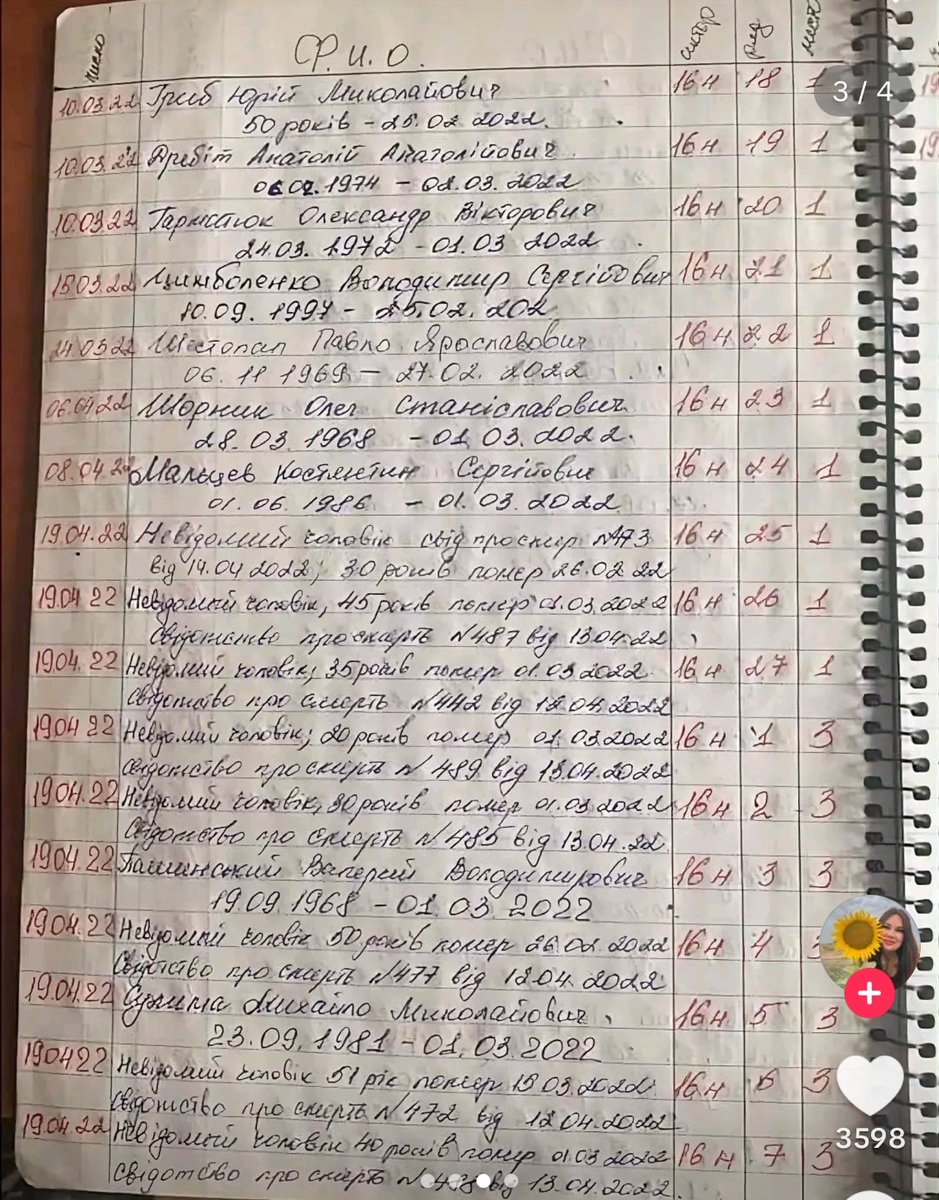 число Ф.И.О. ряд
10.03.22 Гриб Юрій Миколайович 16 н 18 1
50 років - 25.02 2022.
10.03.22 Дребіт Анатолій Анатолійович 16 н 19 1
1974 - 02.03. 2022
10.03.22 Олександр Вікторович 16 н 20 1
24.03. 1972 - 01.03 2022
15.03.22 Цимболенко Володимир Сергійович 16 н 21 1
10.09. 1997 - 25.02. 202
24.03 22 Шістопал Павло Ярославович 16 н 22 1
06. 11 1969 - 27.02. 2022
06.04.22 Шорник Олег Станіславович 16 н 23 1
28.03.1968 - 01.03.2022.
08.04.22 Мальцев Костянтин Сергійович 16 н 24 1
01.06 1986 - 01.03.2022
19.04.22 Невідомий чоловік свід про смер №473 16 н 25 1
від 14.04 2022; 30 років помер 26.02 22
19.04 22 Невідомий чоловік, 45 років помер 01.03.2022 16 н 26 1
Свідотство про смерть №487 від 13.04.22
19.04. 22 Невідомий чоловік; 35 років помер 01.03 2022 16 н 27 1
Свідотство про смерть №442 від 12.04.2022
19.04 22 Невідомий чоловік; 20 років помер 01.03.2022 16 н 1 3
Свідотство про смерть № 489 від 13.04.2022
19.04.22 Невідомий чоловік, 30 років помер 01.03.2022 16 н 2 3
Свідотство про смерть №485 від 13.04.22
19.04.22 Валерий Володимирович 16 н 3 3
19.09.1968 - 01.03.2022
19.04.22 Невідомий чоловік 50 років помер 26.02 2022 16 н 4
Свідотство про смерть №477 від 12.04.2022
19.04.22 Михайло Миколайович 16 н 5 3
23.09.1981 - 01.03.2022
19.04 22 Невідомий чоловік 51 рік помер 15 03.2022 16 н 6 3
Свідотство про смерть №472 від 12.04.2022
19.04.22 Невідомый чоловік 40 років помер 01.03 2022 16 н 7 3
Свідотство про смерть №488 від 13.04.2022.
3 / 4
3598